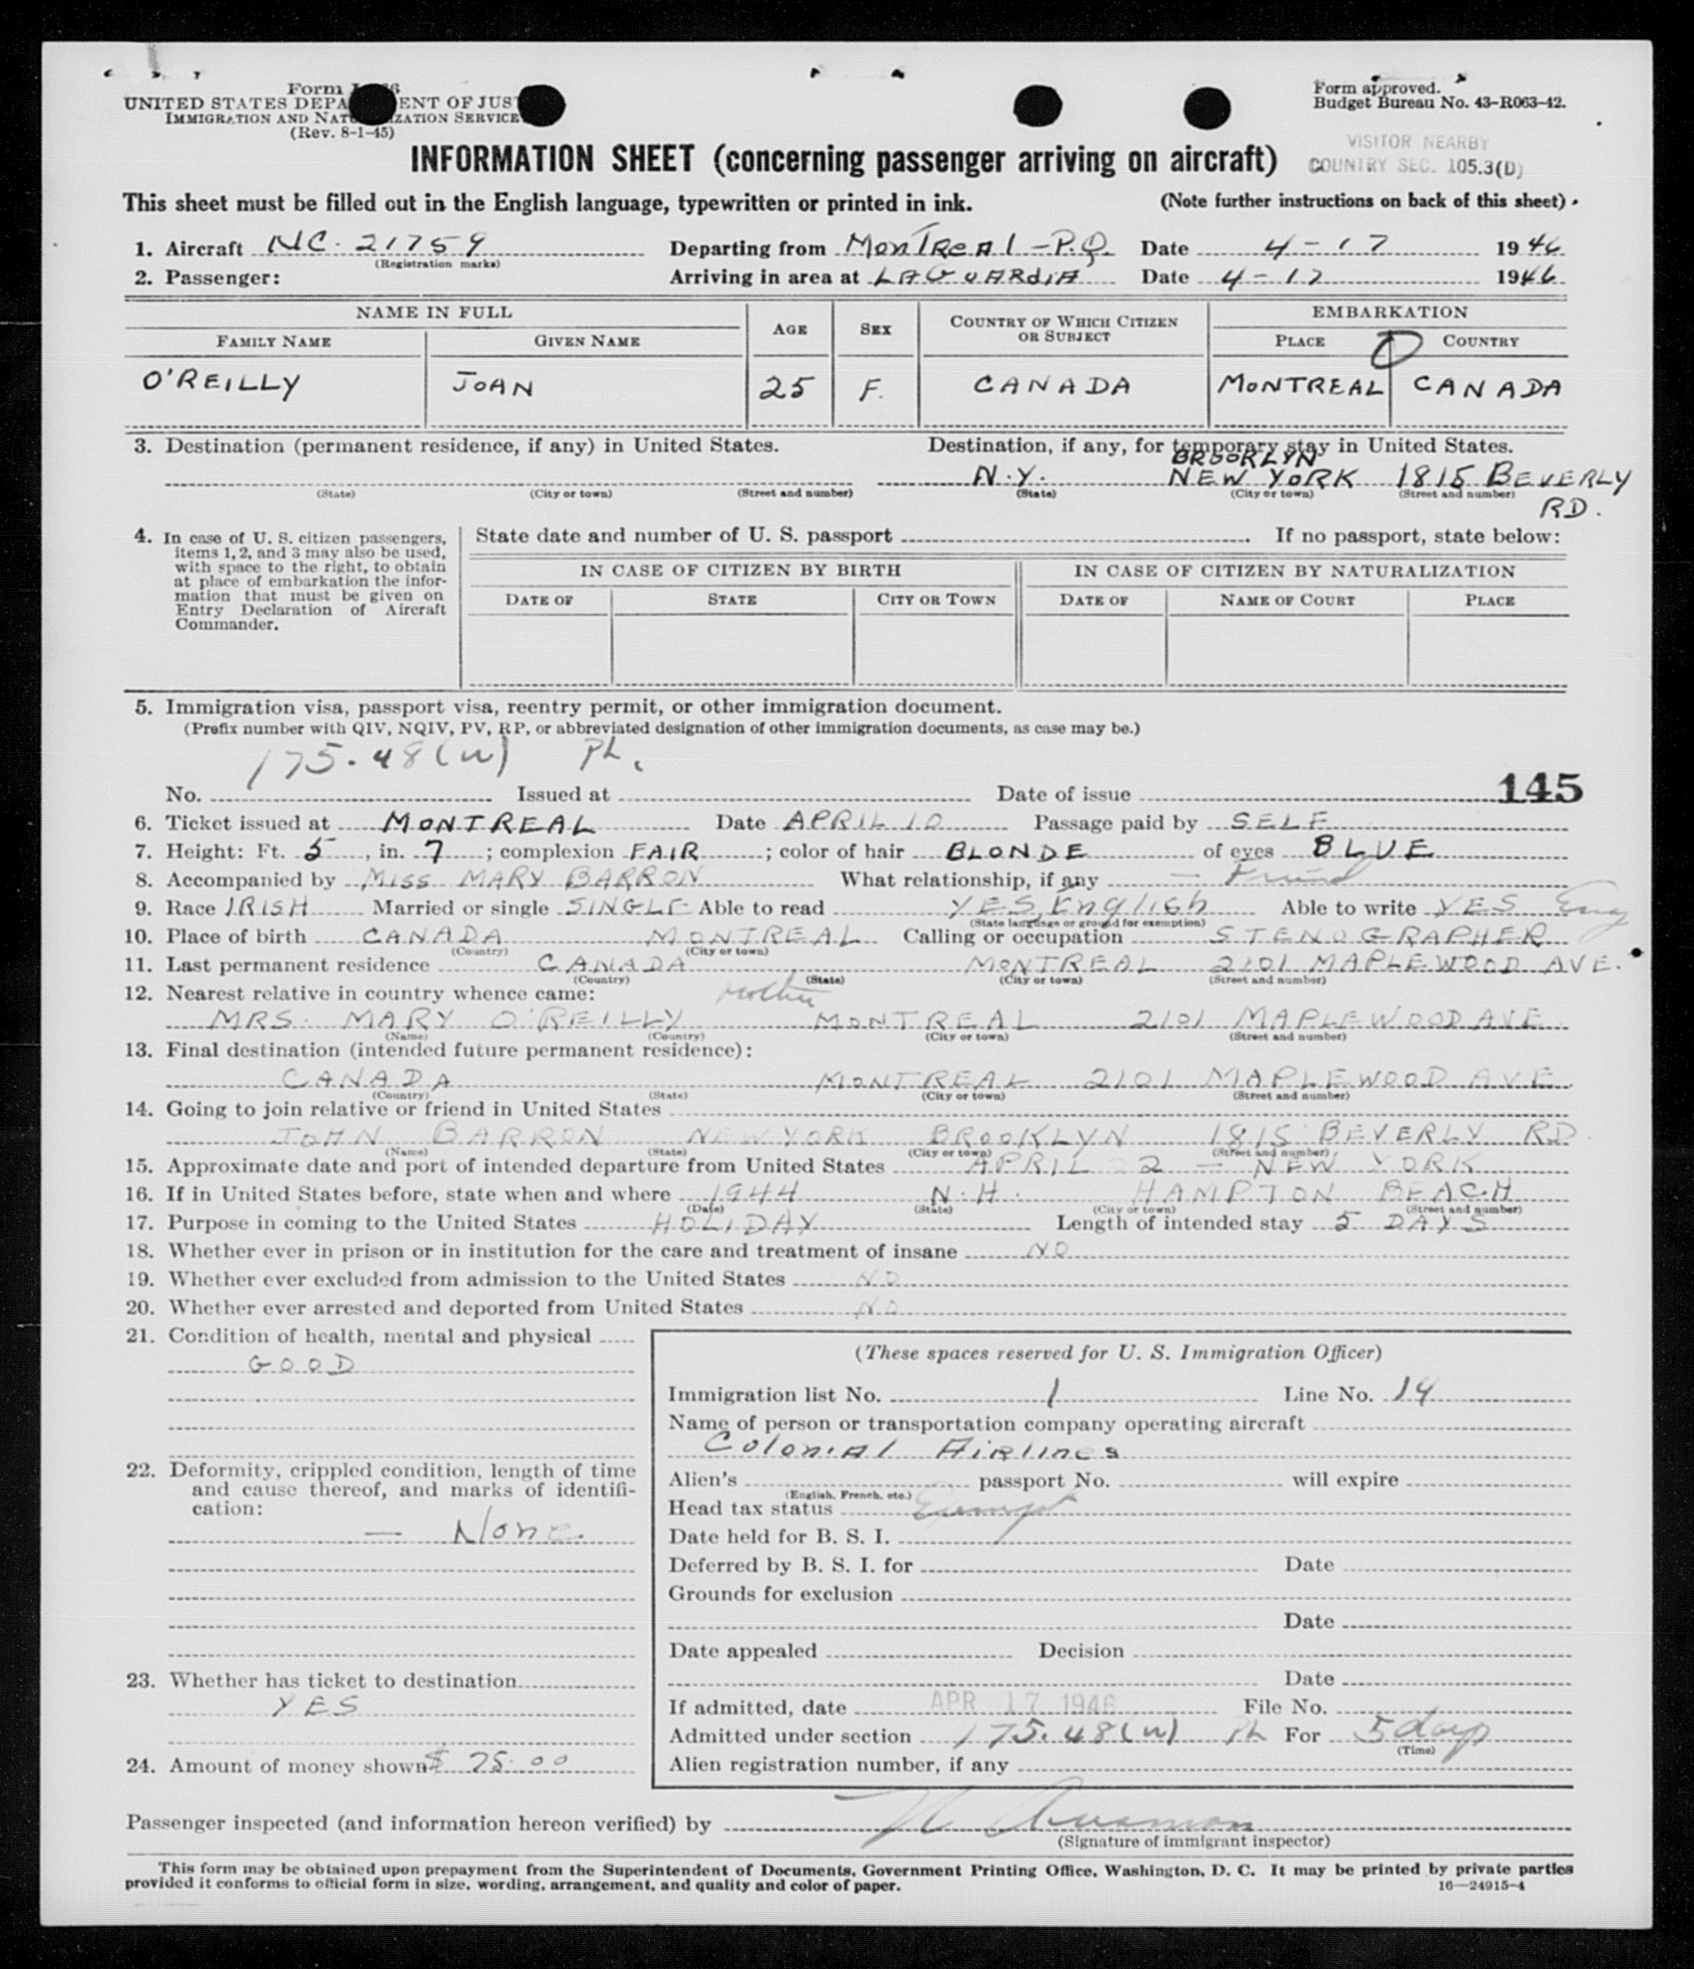 Form I-466
UNITED STATES DEPARTMENT OF JUSTICE
IMMIGRATION AND NATURALIZATION SERVICE
(Rev. 8-1-45)
Form approved.
Budget Bureau No. 43-R063-42.
VISITOR NEARBY
COUNTRY SEC. 105.3(D)
INFORMATION SHEET (concerning passenger arriving on aircraft)
This sheet must be filled out in the English language, typewritten or printed in ink. (Note further instructions on back of this sheet)
1. Aircraft NC. 21759 Departing from MONTREAL-P.Q. Date 4-17 1946
(Registration marks)
2. Passenger: Arriving in area at LAGUARDIA Date 4-17 1946
NAME IN FULL AGE SEX COUNTRY OF WHICH CITIZEN OR SUBJECT EMBARKATION
FAMILY NAME GIVEN NAME PLACE COUNTRY
O'REILLY JOAN 25 F. CANADA MONTREAL CANADA
3. Destination (permanent residence, if any) in United States. Destination, if any, for temporary stay in United States.
BROOKLYN
N.Y. NEW YORK 1815 BEVERLY
(State) (City or town) (Street and number) (State) (City or town) (Street and number)
RD.
4. In case of U. S. citizen passengers, items 1, 2, and 3 may also be used, with space to the right, to obtain at place of embarkation the information that must be given on Entry Declaration of Aircraft Commander.
State date and number of U. S. passport. If no passport, state below:
IN CASE OF CITIZEN BY BIRTH IN CASE OF CITIZEN BY NATURALIZATION
DATE OF STATE CITY OR TOWN DATE OF NAME OF COURT PLACE
5. Immigration visa, passport visa, reentry permit, or other immigration document.
(Prefix number with QIV, NQIV, PV, RP, or abbreviated designation of other immigration documents, as case may be.)
175.48(w) Ph.
No. Issued at Date of issue 145
6. Ticket issued at MONTREAL Date APRIL 10 Passage paid by SELF
7. Height: Ft. 5, in. 7; complexion FAIR; color of hair BLONDE of eyes BLUE
8. Accompanied by MISS MARY BARRON What relationship, if any - Friend
9. Race IRISH Married or single SINGLE Able to read YES, English Able to write YES Eng
(State language or ground for exemption)
10. Place of birth CANADA MONTREAL Calling or occupation STENOGRAPHER
(Country) (City or town)
11. Last permanent residence CANADA MONTREAL 2101 MAPLEWOOD AVE.
(Country) (State) (City or town) (Street and number)
12. Nearest relative in country whence came: Mother
MRS. MARY O'REILLY MONTREAL 2101 MAPLEWOOD AVE
(Name) (Country) (City or town) (Street and number)
13. Final destination (intended future permanent residence):
CANADA MONTREAL 2101 MAPLEWOOD AVE
(Country) (State) (City or town) (Street and number)
14. Going to join relative or friend in United States
JOHN BARRON NEW YORK BROOKLYN 1815 BEVERLY RD
(Name) (State) (City or town) (Street and number)
15. Approximate date and port of intended departure from United States APRIL 22 - NEW YORK
16. If in United States before, state when and where 1944 N.H. HAMPTON BEACH
(Date) (State) (City or town) (Street and number)
17. Purpose in coming to the United States HOLIDAY Length of intended stay 5 DAYS
18. Whether ever in prison or in institution for the care and treatment of insane NO
19. Whether ever excluded from admission to the United States NO
20. Whether ever arrested and deported from United States NO
21. Condition of health, mental and physical
GOOD
22. Deformity, crippled condition, length of time and cause thereof, and marks of identification:
- None.
23. Whether has ticket to destination
YES
24. Amount of money shown $ 75.00
(These spaces reserved for U. S. Immigration Officer)
Immigration list No. 1 Line No. 14
Name of person or transportation company operating aircraft
Colonial Airlines
Alien's passport No. will expire
(English, French, etc.)
Head tax status Exempt
Date held for B. S. I.
Deferred by B. S. I. for Date
Grounds for exclusion
Date
Date appealed Decision
Date
If admitted, date APR 17 1946 File No.
Admitted under section 175.48(w) Ph For 5 days
(Time)
Alien registration number, if any
Passenger inspected (and information hereon verified) by
(Signature of immigrant inspector)
This form may be obtained upon prepayment from the Superintendent of Documents, Government Printing Office, Washington, D. C. It may be printed by private parties
provided it conforms to official form in size, wording, arrangement, and quality and color of paper. 16—24915-4